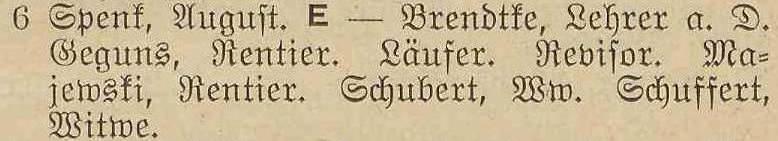 6 Spenk, August. E — Brendtke, Lehrer a. D.
Geguns, Rentier. Läufer. Revisor. Ma=
jewski, Rentier. Schubert, Ww. Schuffert,
Witwe.